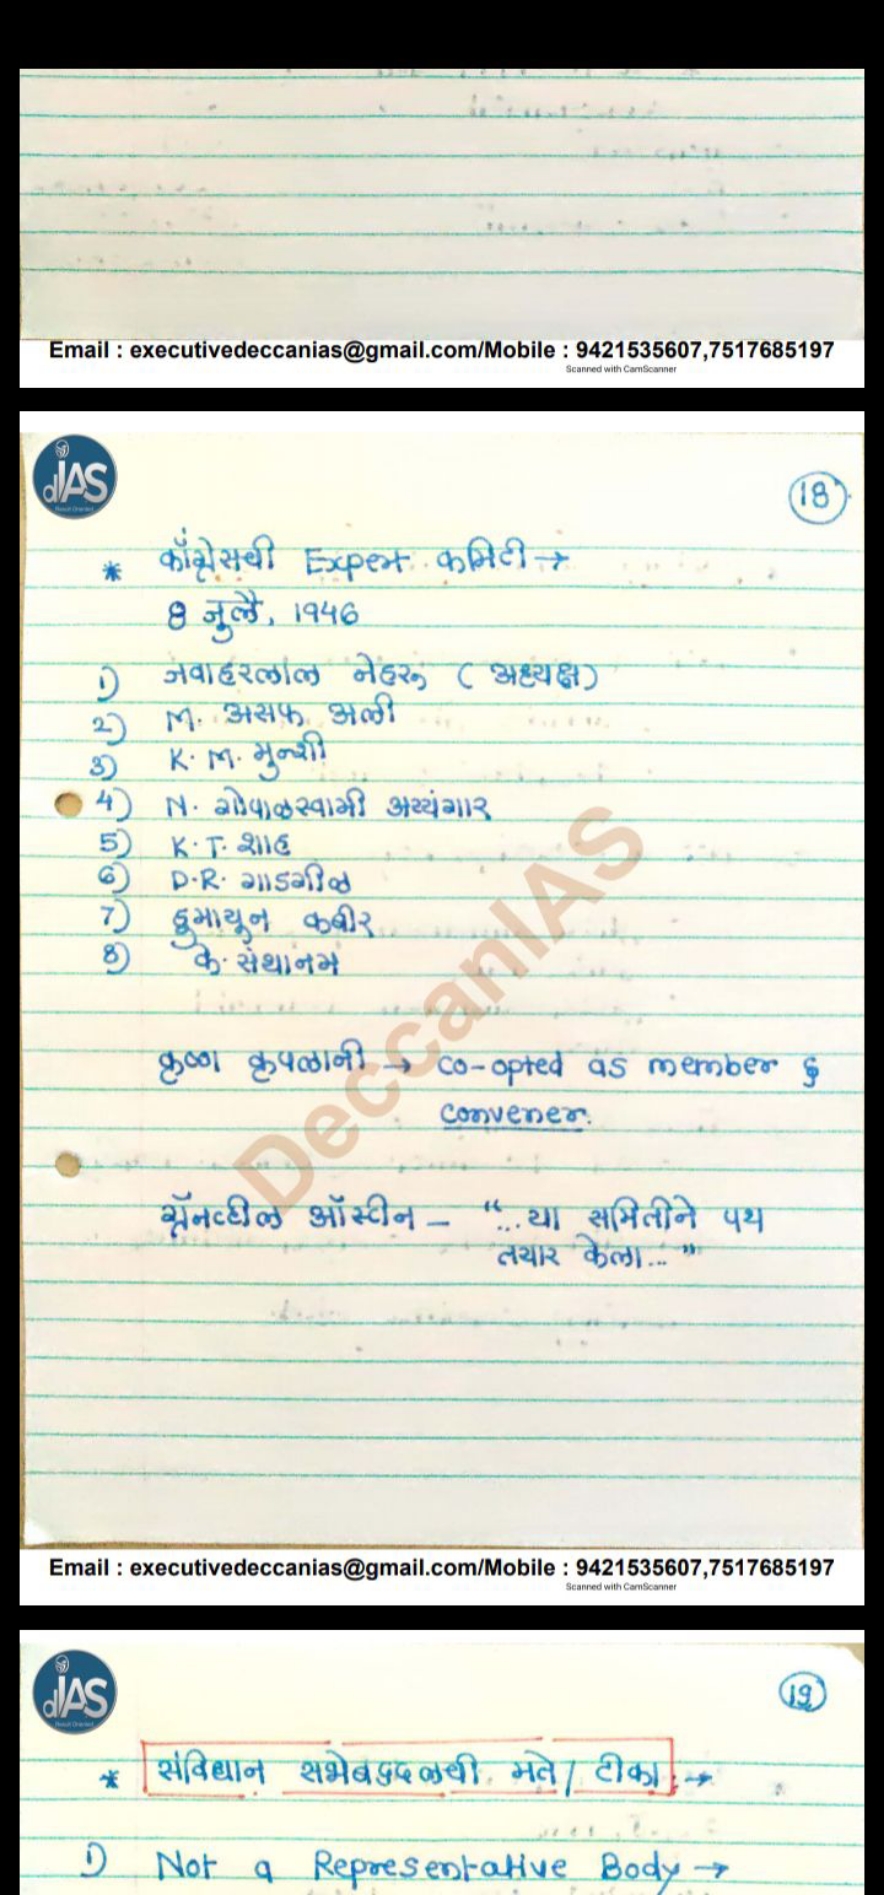 Email : executivedeccanias@gmail.com/Mobile : 9421535607,7517685197
Scanned with CamScanner
dIAS
18
* काँग्रेसची Expert कमिटी →
8 जुलै, 1946
1) जवाहरलाल नेहरू (अध्यक्ष)
2) M. असफ अली
3) K. M. मुन्शी
4) N. गोपाळस्वामी अय्यंगार
5) K. T. शाह
6) D.R. गाडगीळ
7) हुमायून कबीर
8) के. संथानम
कृष्ण कृपलानी → co-opted as member &
convener.
ग्रॅनव्हील ऑस्टीन – "... या समितीने पथ
तयार केला..."
DeccanIAS
Email : executivedeccanias@gmail.com/Mobile : 9421535607,7517685197
Scanned with CamScanner
dIAS
19
* संविधान सभेबद्दलची मते / टीका :→
1) Not a Representative Body →